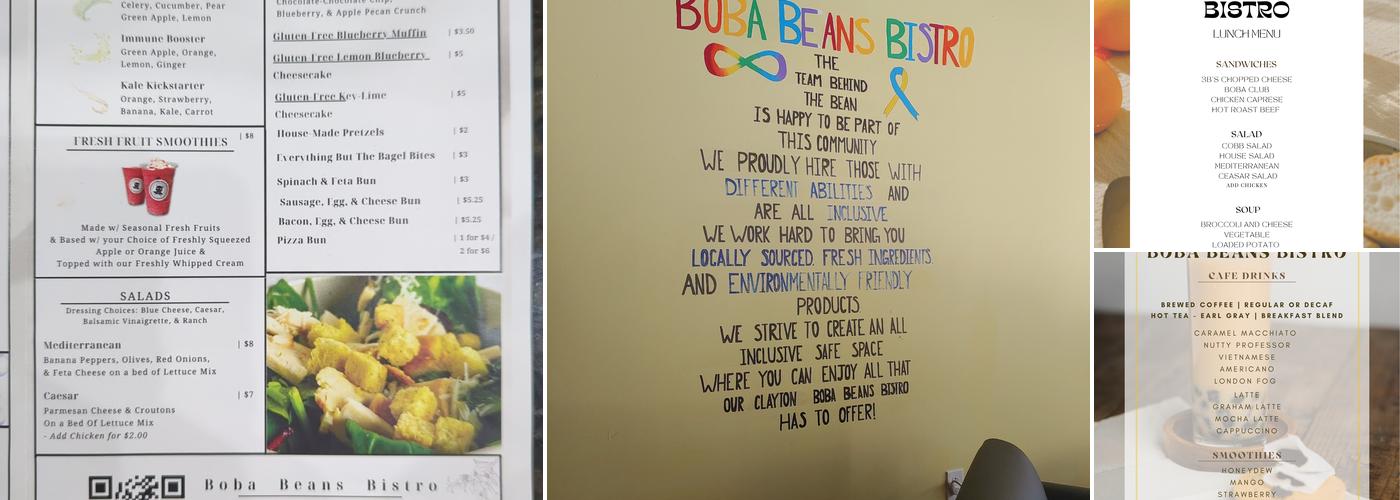 Celery, Cucumber, Pear
Green Apple, Lemon
Immune Booster
Green Apple, Orange,
Lemon, Ginger
Kale Kickstarter
Orange, Strawberry,
Banana, Kale, Carrot
FRESH FRUIT SMOOTHIES | $8
Made w/ Seasonal Fresh Fruits
& Based w/ your Choice of Freshly Squeezed
Apple or Orange Juice &
Topped with our Freshly Whipped Cream
SALADS
Dressing Choices: Blue Cheese, Caesar,
Balsamic Vinaigrette, & Ranch
Mediterranean | $8
Banana Peppers, Olives, Red Onions,
& Feta Cheese on a bed of Lettuce Mix
Caesar | $7
Parmesan Cheese & Croutons
On a Bed Of Lettuce Mix
- Add Chicken for $2.00
Chocolate-Chocolate Chip,
Blueberry, & Apple Pecan Crunch
Gluten Free Blueberry Muffin | $3.50
Gluten Free Lemon Blueberry | $5
Cheesecake
Gluten-Free Key-Lime | $5
Cheesecake
House-Made Pretzels | $2
Everything But The Bagel Bites | $3
Spinach & Feta Bun | $3
Sausage, Egg, & Cheese Bun | $5.25
Bacon, Egg, & Cheese Bun | $5.25
Pizza Bun | 1 for $4 /
2 for $6
Boba Beans Bistro
BOBA BEANS BISTRO
THE
TEAM BEHIND
THE BEAN
IS HAPPY TO BE PART OF
THIS COMMUNITY
WE PROUDLY HIRE THOSE WITH
DIFFERENT ABILITIES AND
ARE ALL INCLUSIVE
WE WORK HARD TO BRING YOU
LOCALLY SOURCED, FRESH INGREDIENTS,
AND ENVIRONMENTALLY FRIENDLY
PRODUCTS
WE STRIVE TO CREATE AN ALL
INCLUSIVE SAFE SPACE
WHERE YOU CAN ENJOY ALL THAT
OUR CLAYTON BOBA BEANS BISTRO
HAS TO OFFER!
BISTRO
LUNCH MENU
SANDWICHES
3B'S CHOPPED CHEESE
BOBA CLUB
CHICKEN CAPRESE
HOT ROAST BEEF
SALAD
COBB SALAD
HOUSE SALAD
MEDITERRANEAN
CEASAR SALAD
ADD CHICKEN
SOUP
BROCCOLI AND CHEESE
VEGETABLE
LOADED POTATO
BOBA BEANS BISTRO
CAFE DRINKS
BREWED COFFEE | REGULAR OR DECAF
HOT TEA - EARL GRAY | BREAKFAST BLEND
CARAMEL MACCHIATO
NUTTY PROFESSOR
VIETNAMESE
AMERICANO
LONDON FOG
LATTE
GRAHAM LATTE
MOCHA LATTE
CAPPUCCINO
SMOOTHIES
HONEYDEW
MANGO
STRAWBERRY